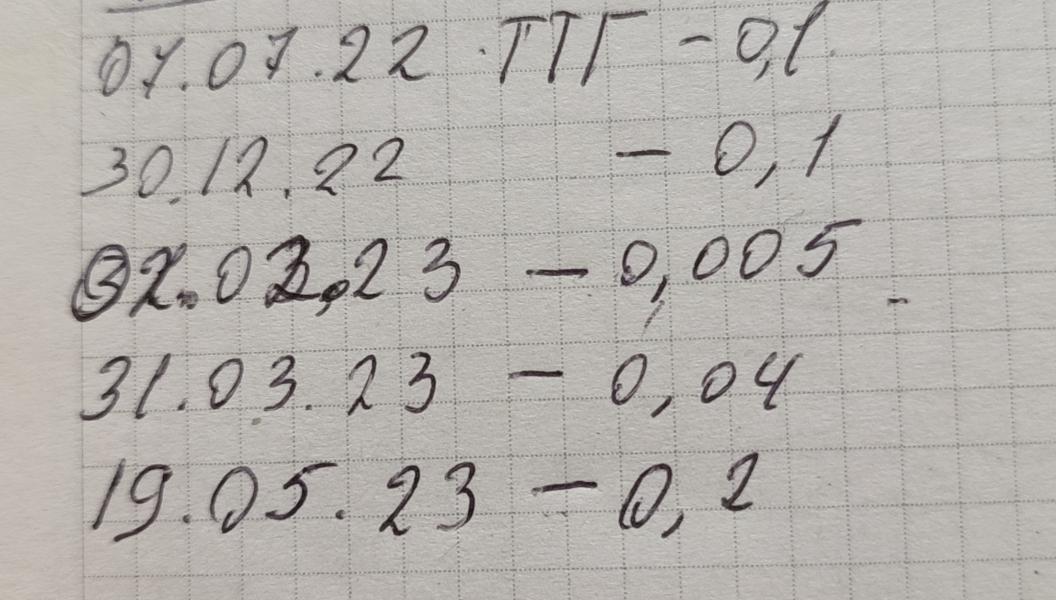 07.07.22 ТТГ - 0,1
30.12.22 - 0,1
02.03.23 - 0,005
31.03.23 - 0,04
19.05.23 - 0,2